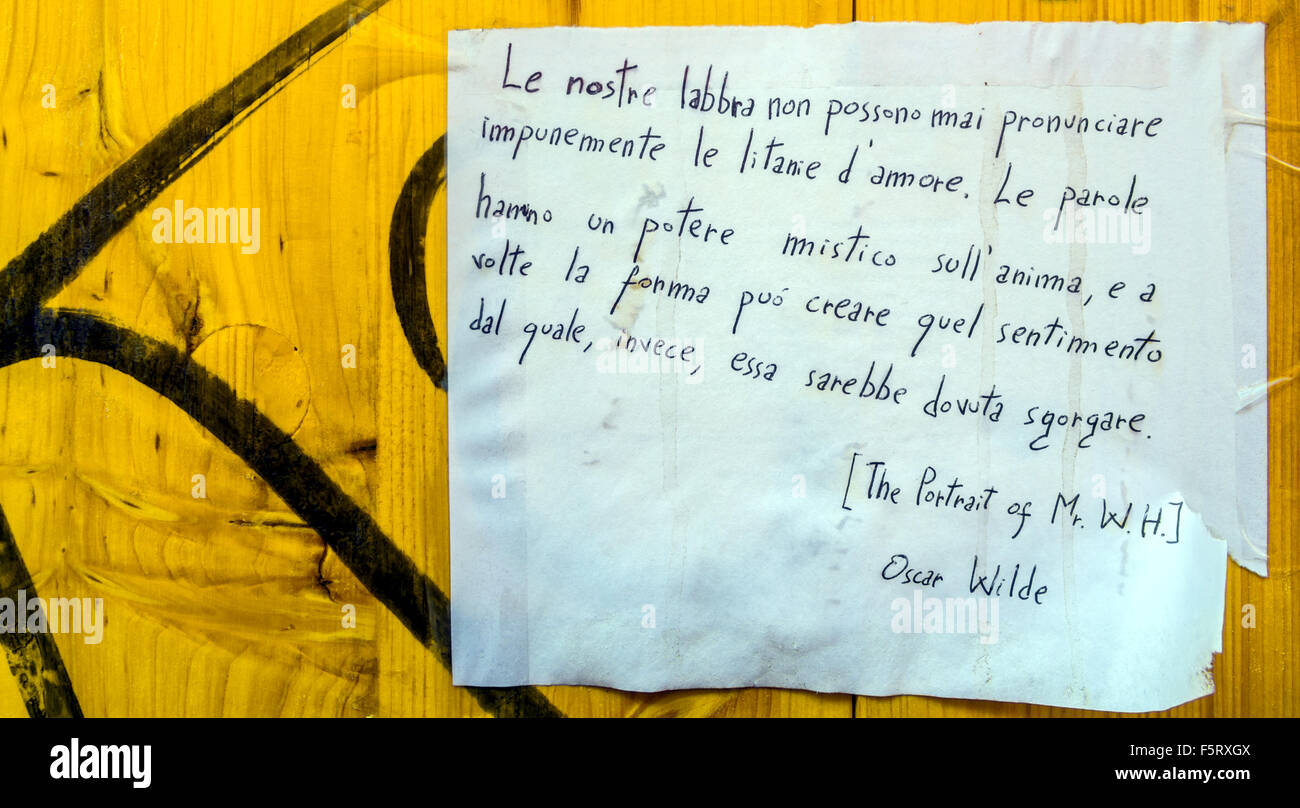 Le nostre labbra non possono mai pronunciare
impunemente le litanie d'amore. Le parole
hanno un potere mistico sull'anima, e a
volte la forma puó creare quel sentimento
dal quale, invece, essa sarebbe dovuta sgorgare.
[The Portrait of Mr. W.H.]
Oscar Wilde
alamy
Image ID: F5RXGX
www.alamy.com